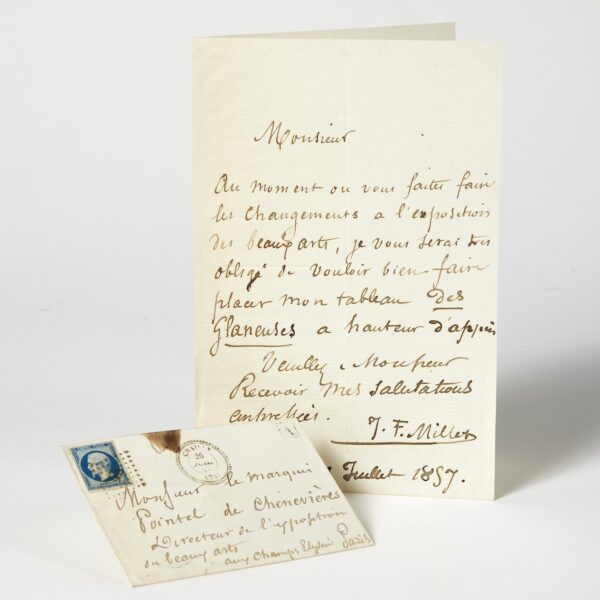 Monsieur
Au moment ou vous faites faire
les changements a l'exposition
des beaux arts, je vous serai très
obligé de vouloir bien faire
placer mon tableau des
Glaneuses a hauteur d'appui
Veuillez Monsieur
Recevoir mes salutations
J. F. Millet
Juillet 1857.
26
Monsieur le marquis
Pointel de Chénevières
Directeur de l'exposition
des beaux arts aux Champs Elysées Paris